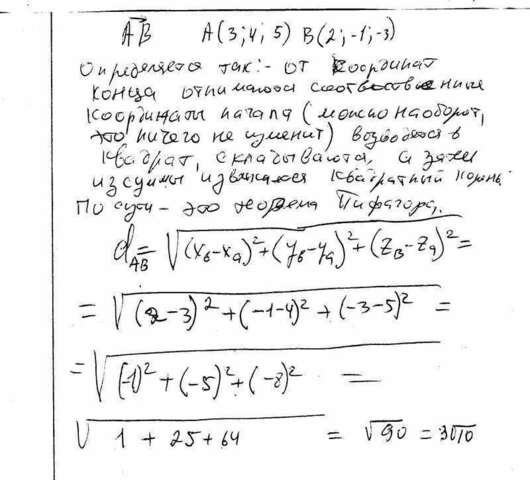 AB A(3; 4; 5) B(2; -1; -3)
Определяется так: - от координат
конца отнимаются соответственные
координаты начала (можно наоборот,
это ничего не изменит) возводятся в
квадрат, складываются, а затем
из суммы извлекается квадратный корень.
По сути - это теорема Пифагора.
d_AB = √(x_B-x_A)²+(y_B-y_A)²+(z_B-z_A)² =
= √(2-3)²+(-1-4)²+(-3-5)² =
= √(-1)²+(-5)²+(-8)² =
√1+25+64 = √90 = 3√10